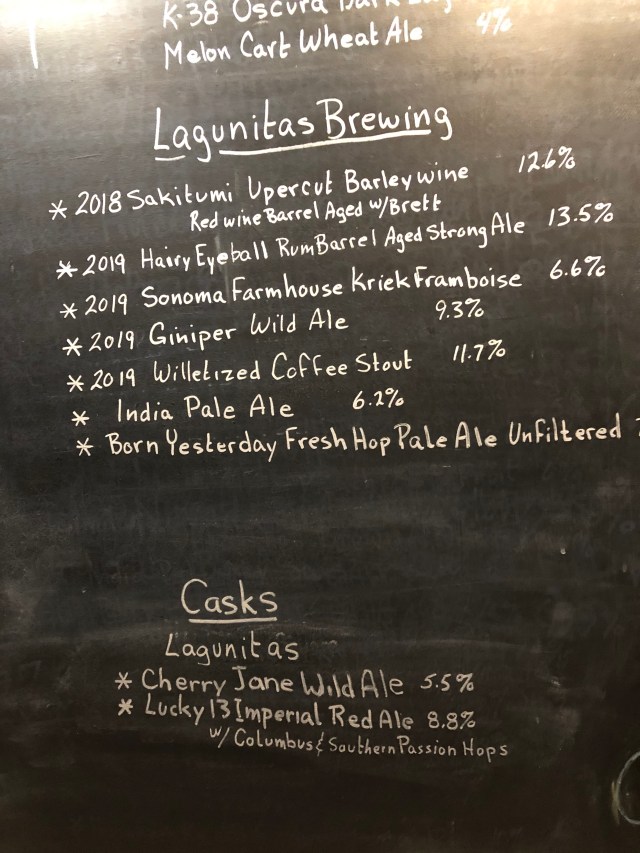 K-38 Oscura Dark
Melon Cart Wheat Ale 4%
Lagunitas Brewing
* 2018 Sakitumi Upercut Barleywine 12.6%
Red wine Barrel Aged w/Brett
* 2019 Hairy Eyeball Rum Barrel Aged Strong Ale 13.5%
* 2019 Sonoma Farmhouse Kriek Framboise 6.6%
* 2019 Giniper Wild Ale 9.3%
* 2019 Willetized Coffee Stout 11.7%
* India Pale Ale 6.2%
* Born Yesterday Fresh Hop Pale Ale Unfiltered
Casks
Lagunitas
* Cherry Jane Wild Ale 5.5%
* Lucky 13 Imperial Red Ale 8.8%
w/ Columbus & Southern Passion Hops